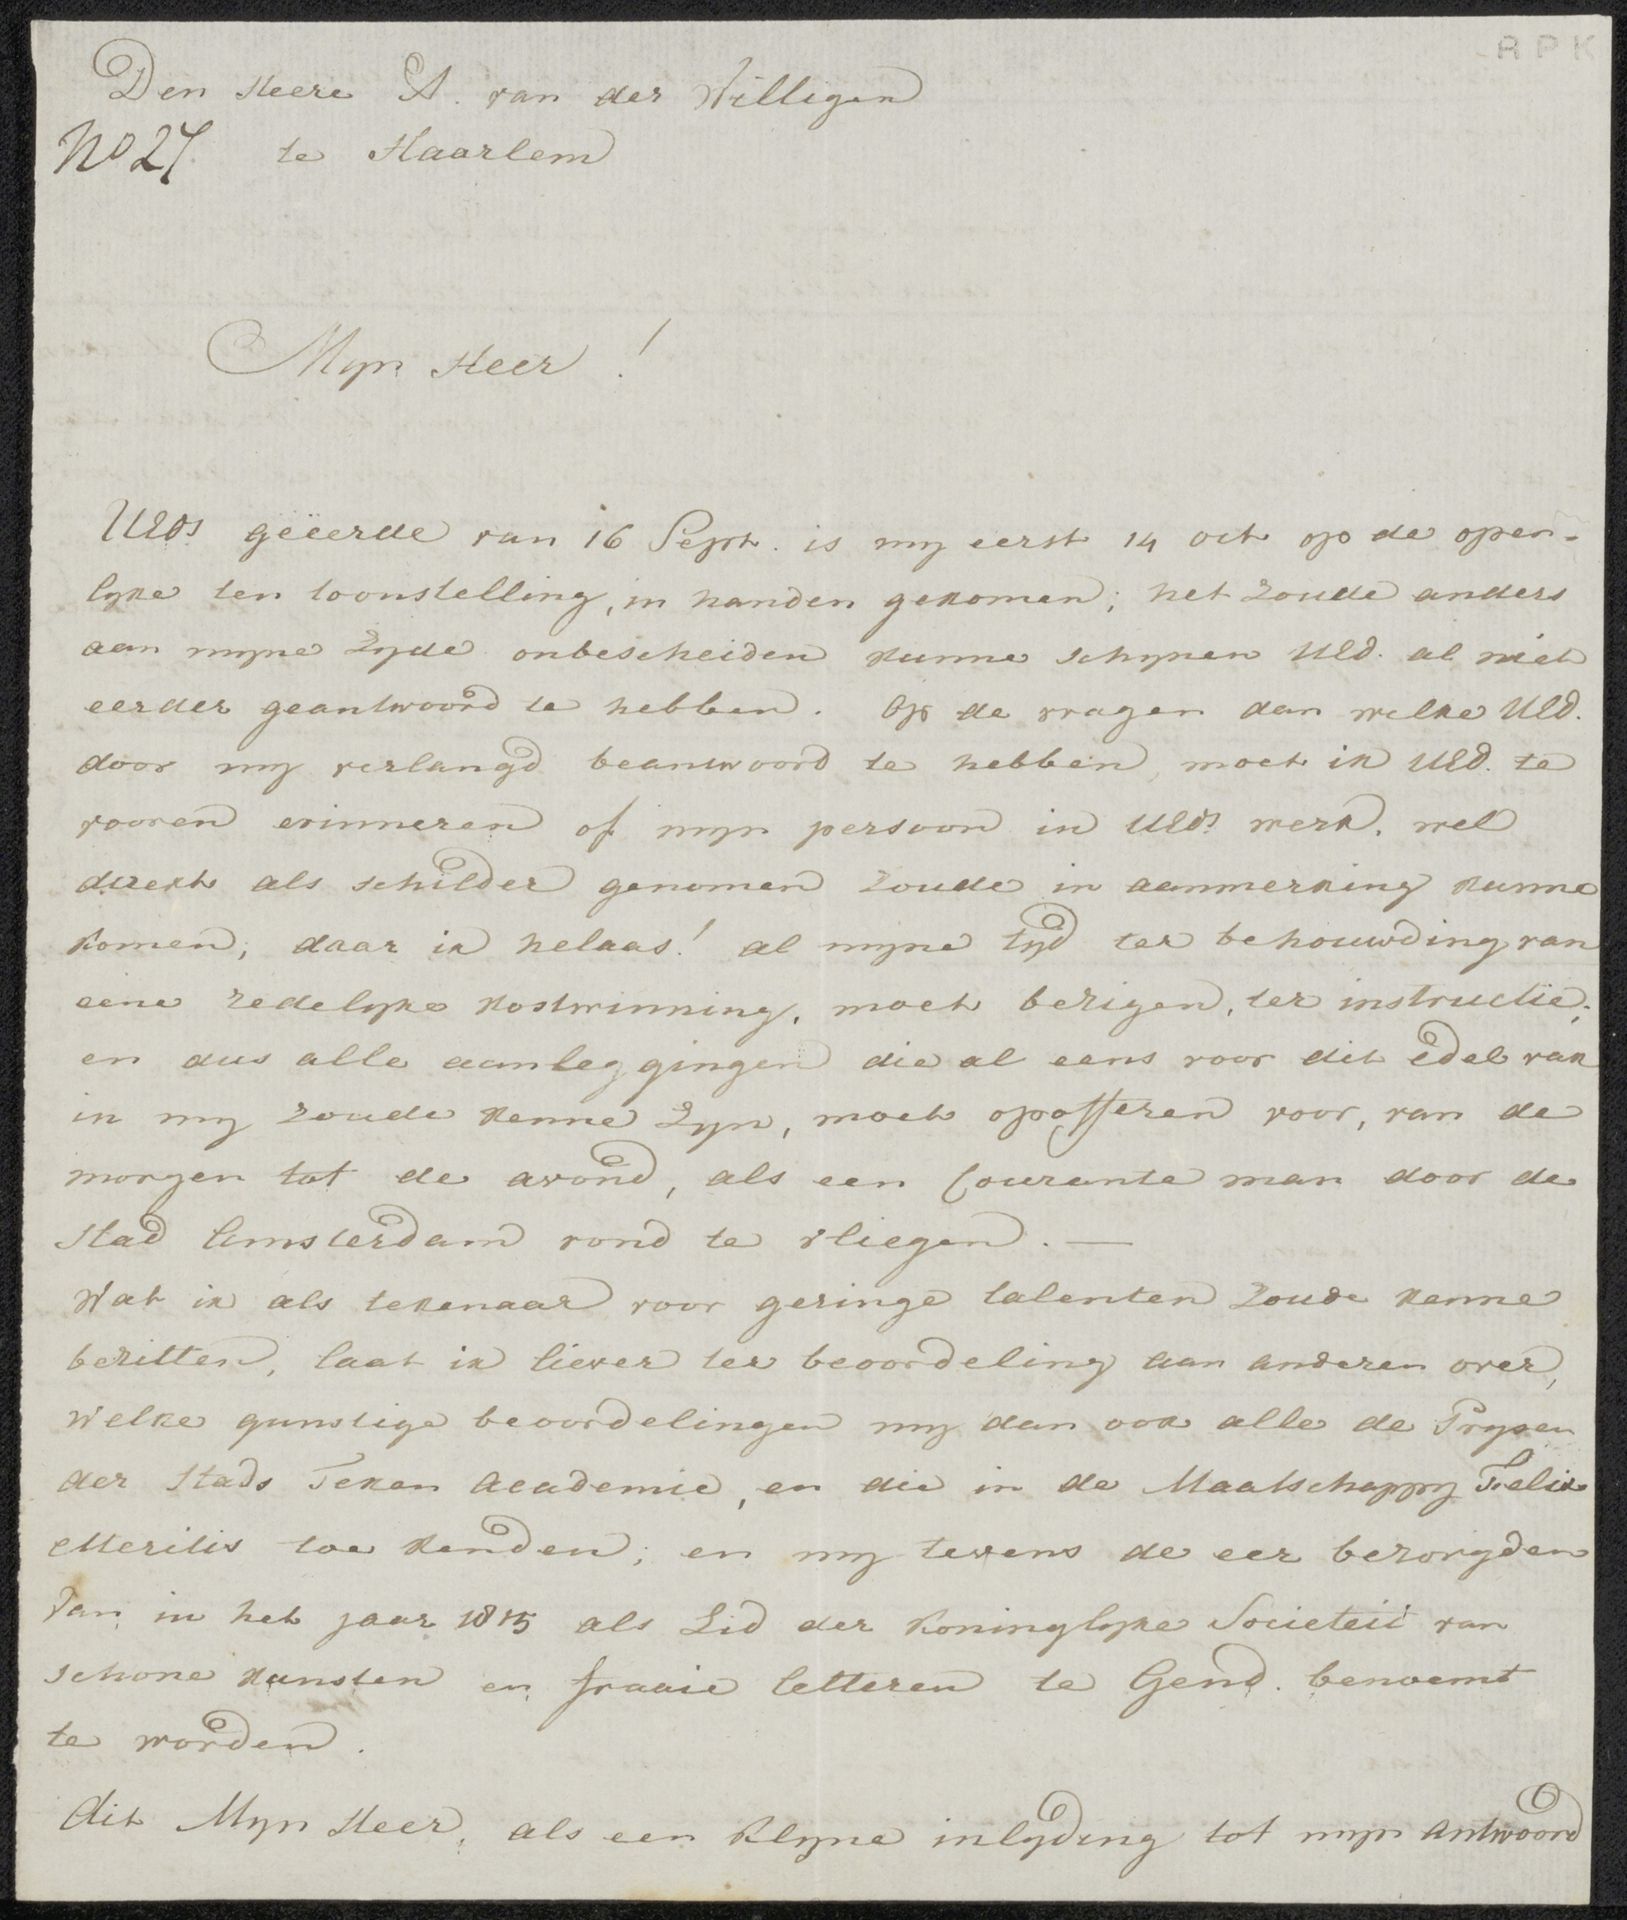 RPK
Den Heere A. van der Willigen
No 27. te Haarlem
Myn Heer!
UEds geëerde van 16 Sept. is my eerst 14 oct op de open-
lyke ten toonstelling, in handen gekomen; het zoude anders
aan myne zyde onbescheiden kunne schynen UEd. al niet
eerder geantwoord te hebben. Op de vragen dan welke UEd.
door my verlangd beantwoord te hebben, moet ik UEd. te
vooren erinneren of myn persoon in UEds werk. wel
direkt als schilder genomen zoude in aanmerking kunne
komen; daar ik helaas! al myne tyd ter behouwding van
eene redelyke kostwinning, moet bezigen, ter instructie;
en dus alle aanleggingen die al eens voor dit edel vak
in my zoude kenne zyn, moet opofferen voor, van de
morgen tot de avond, als een Courante man door de
Stad Amsterdam rond te vliegen. —
Wat ik als tekenaar voor geringe talenten zoude kenne
bezitten, laat ik liever ter beoordeling aan anderen over,
welke gunstige beoordelingen my dan ook alle de Prysen
der Stads Teken Academie, en die in de Maatschappy Felix
Meritis toe kenden; en my tevens de eer bezorgden
van in het jaar 1815 als Lid der Koninglyke Societeit van
schone kunsten en fraaie letteren te Gend. benoemt
te worden.
dit Myn Heer, als een klyne inlyding tot myn antwoord